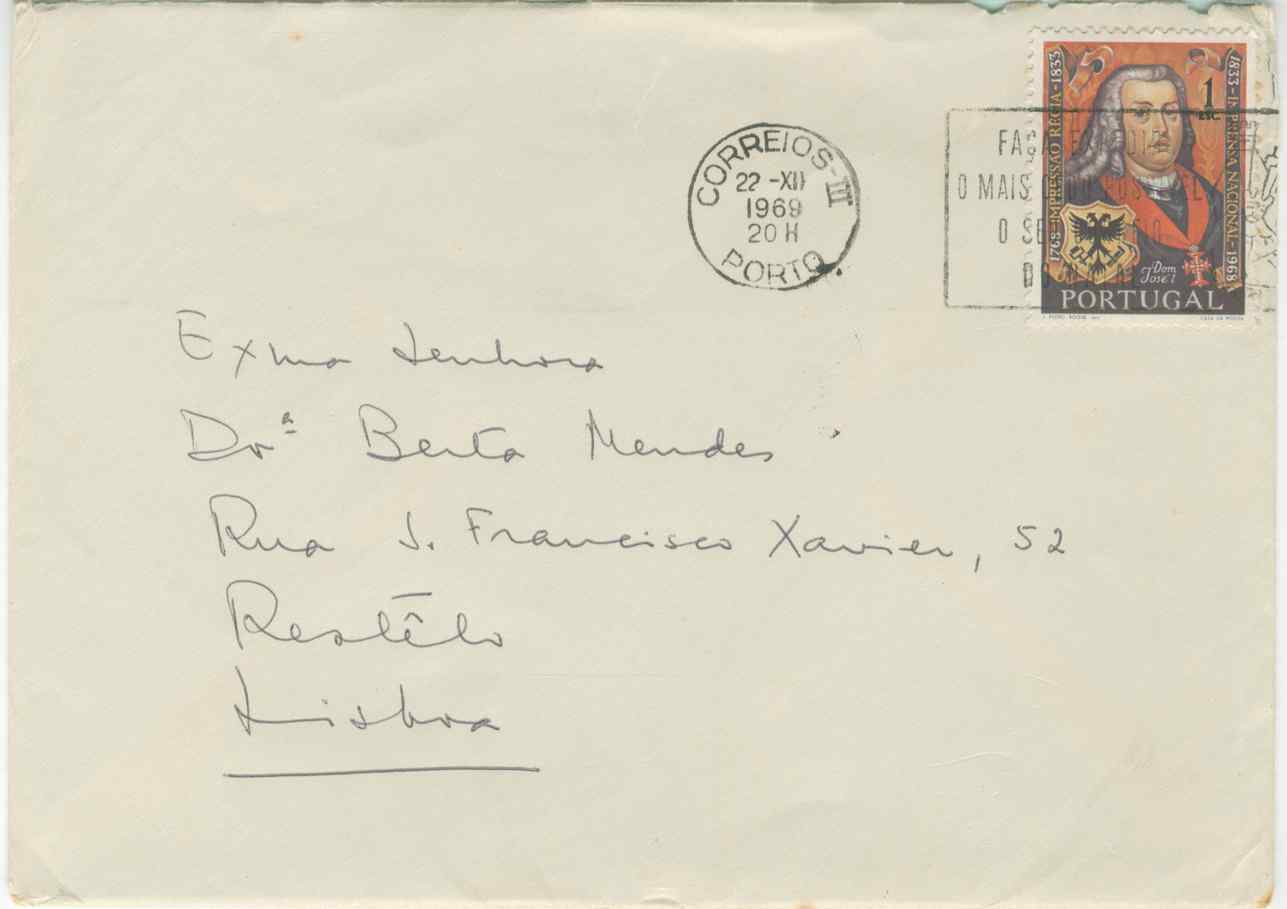 CORREIOS-III
22-XII
1969
20H
PORTO
1768-IMPRESSÃO RÉGIA-1833
1833-IMPRENSA NACIONAL-1968
1
ESC.
Dom
José I
PORTUGAL
FAÇA
O MAIS
O SE
Exma Senhora
Drª Berta Mendes
Rua S. Francisco Xavier, 52
Restêlo
Lisboa